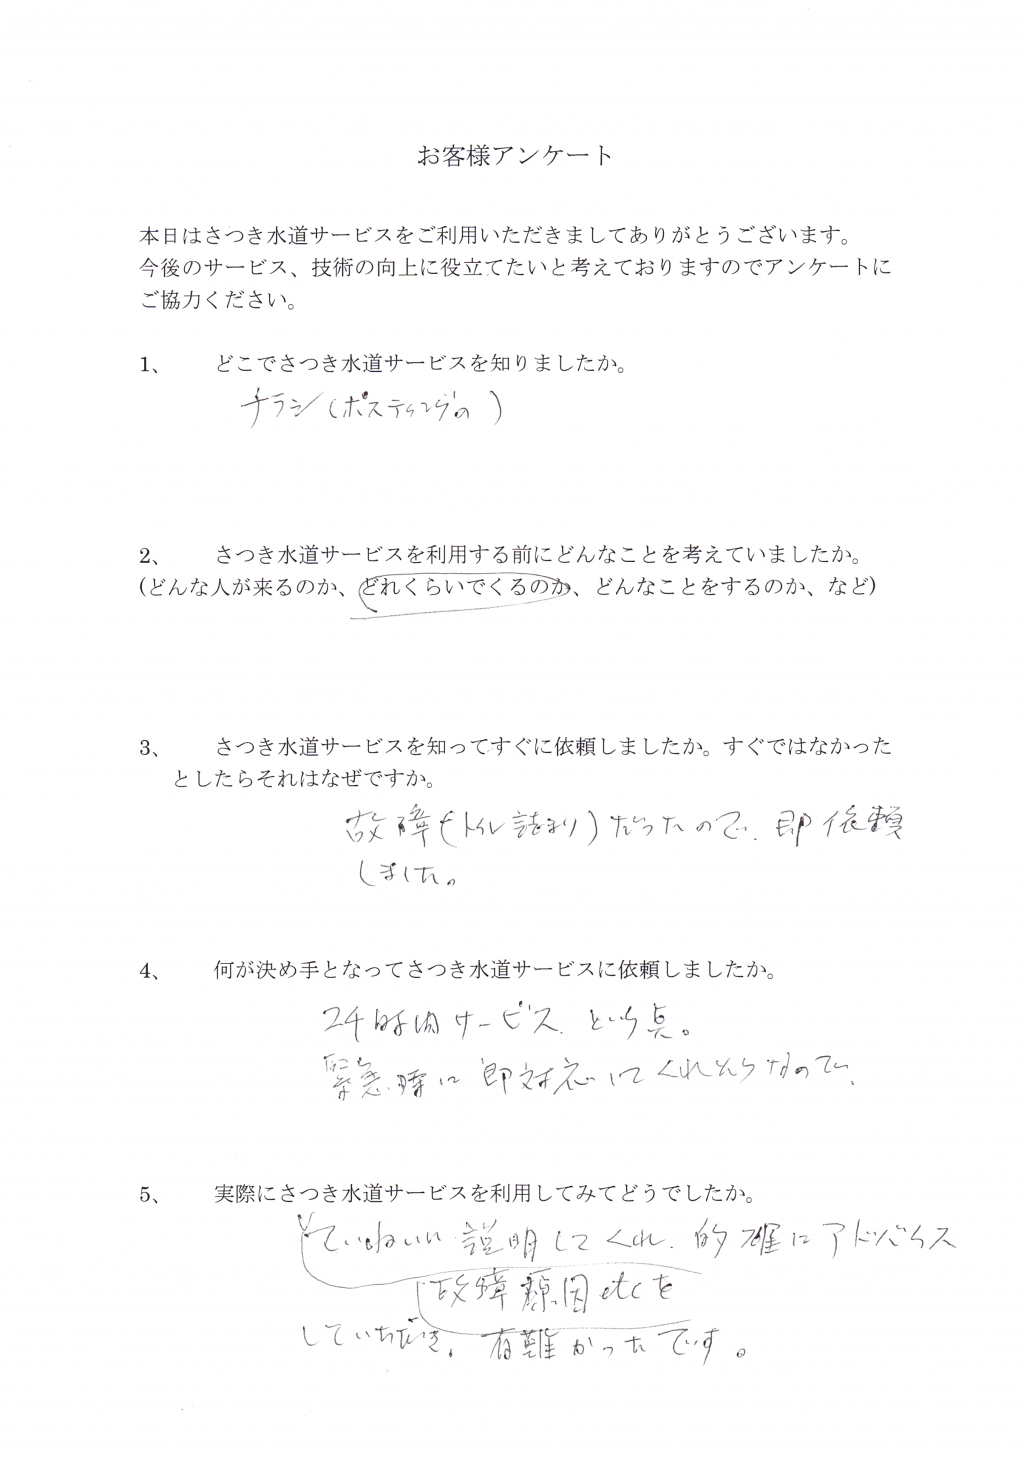 お客様アンケート
本日はさつき水道サービスをご利用いただきましてありがとうございます。
今後のサービス、技術の向上に役立てたいと考えておりますのでアンケートに
ご協力ください。
1、 どこでさつき水道サービスを知りましたか。
チラシ(ポスティングの)
2、 さつき水道サービスを利用する前にどんなことを考えていましたか。
(どんな人が来るのか、どれくらいでくるのか、どんなことをするのか、など)
3、 さつき水道サービスを知ってすぐに依頼しましたか。すぐではなかった
としたらそれはなぜですか。
故障(トイレ詰まり)だったので、即依頼
しました。
4、 何が決め手となってさつき水道サービスに依頼しましたか。
24時間サービスという点。
緊急時に即対応してくれそうなので、
5、 実際にさつき水道サービスを利用してみてどうでしたか。
ていねいに説明してくれ、的確にアドバイス
故障原因etcを
していただき、有難かったです。